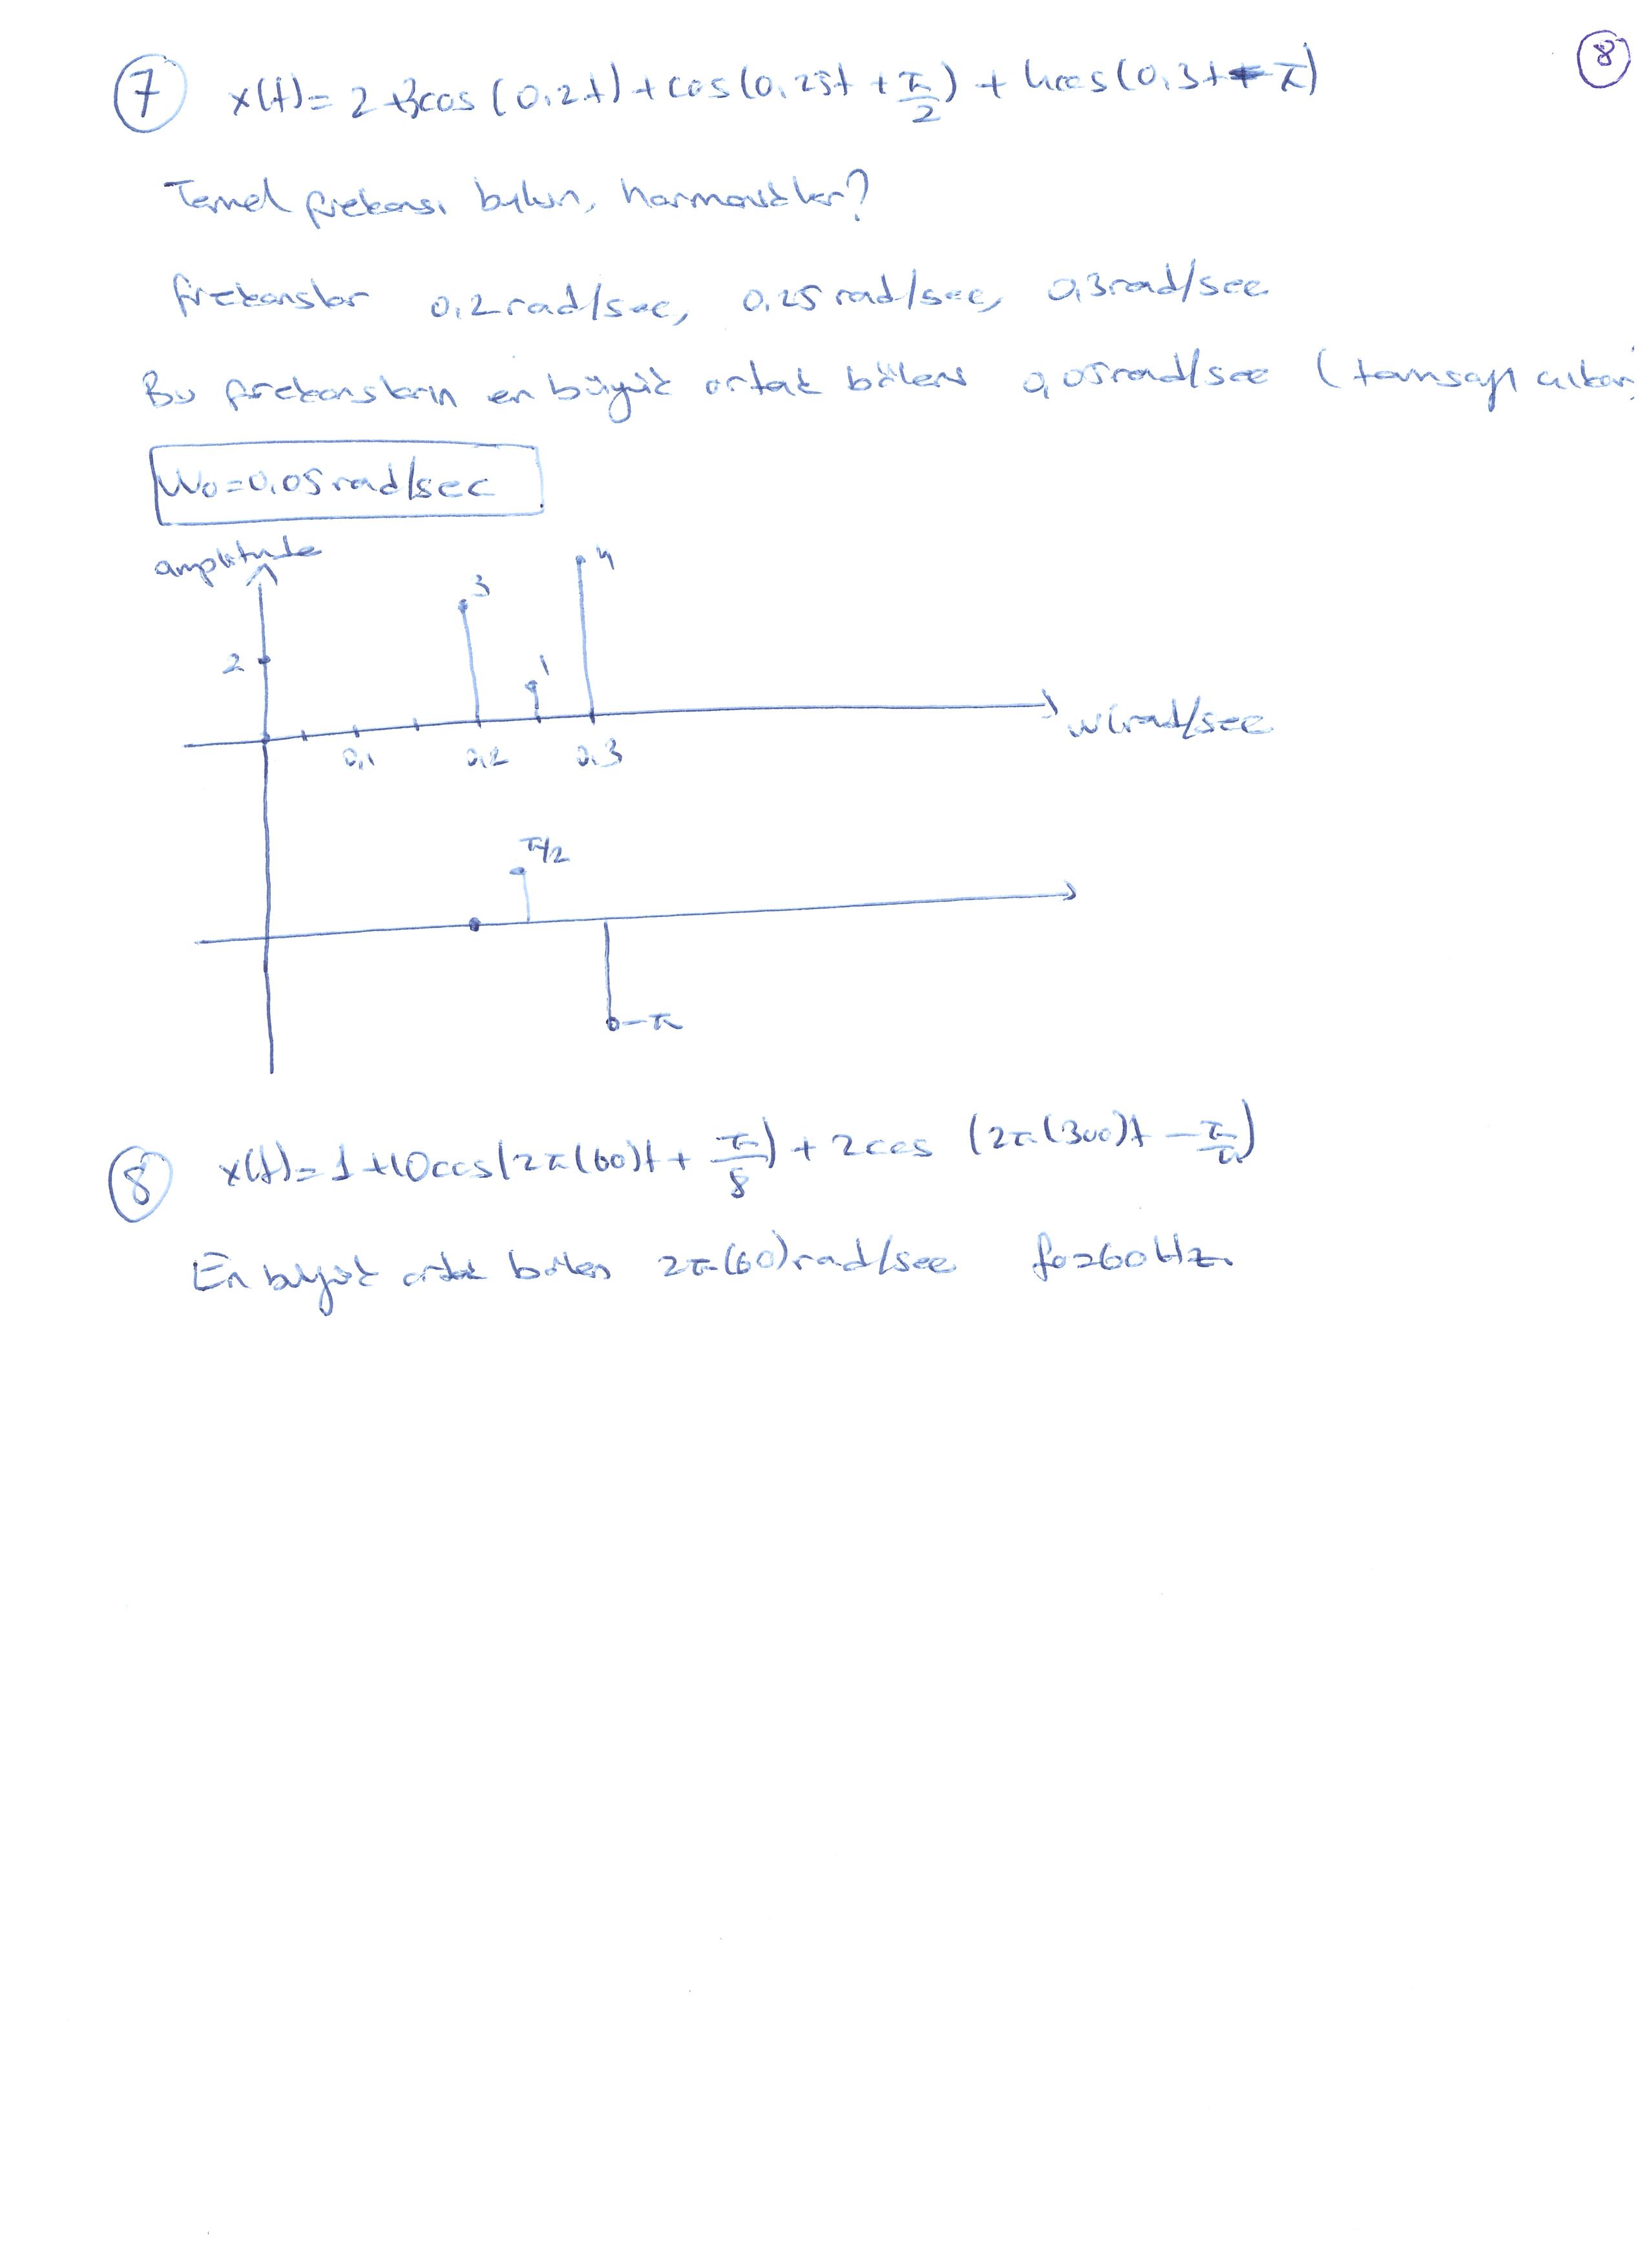 8
7 x(t)= 2+3cos(0.2t)+cos(0.25t+π/2)+4cos(0.3t-π)
Temel frekansı bulun, harmonikler?
frekanslar 0.2rad/sec, 0.25 rad/sec, 0.3rad/sec
Bu frekansların en büyük ortak böleni 0,05rad/sec (tamsayı çıkan
W0=0.05rad/sec
amplitude
4
3
2
1
0.1 0.2 0.3
w(rad/sec
π/2
-π
8 x(t)=1+10cos(2π(60)t+π/8)+2cos(2π(300)t-π/4)
En büyük ortak bölen 2π(60)rad/sec f0=60Hz.